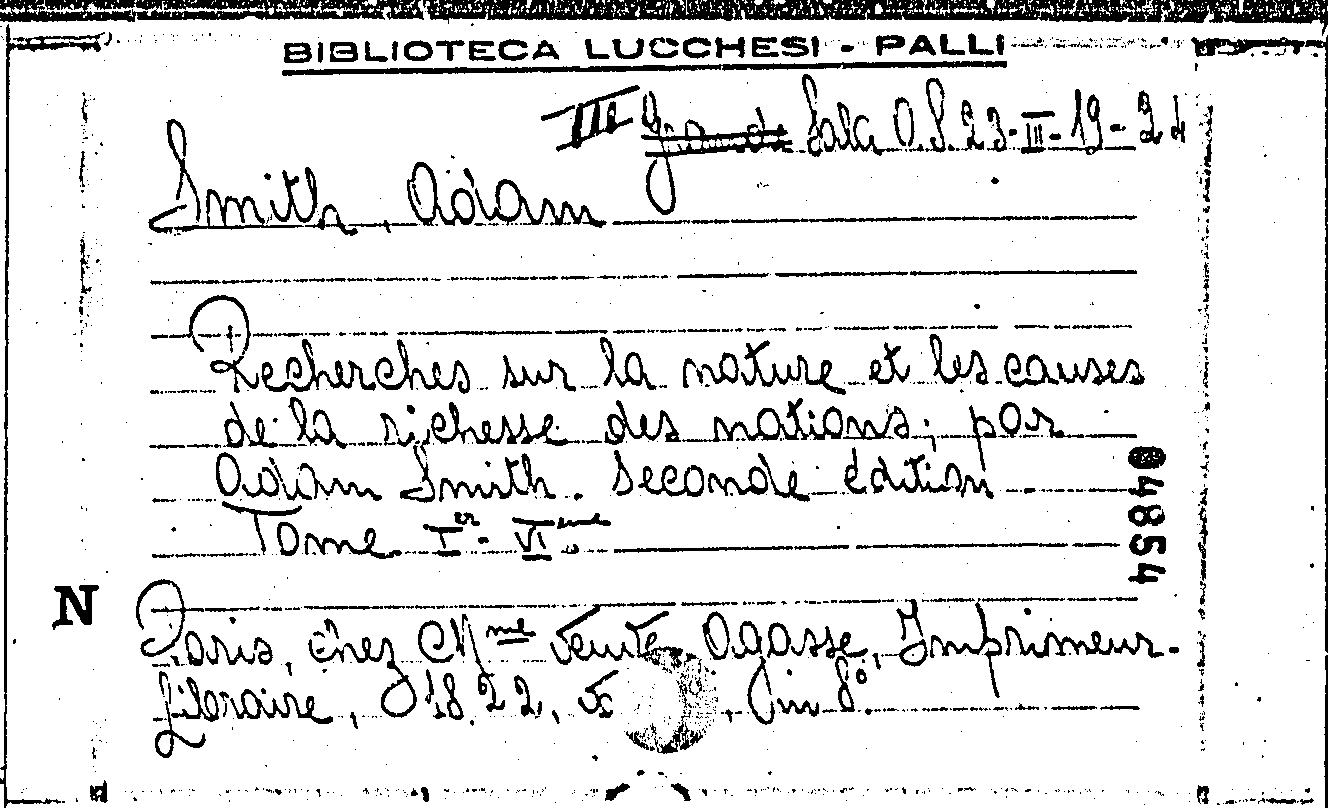 BIBLIOTECA LUCCHESI - PALLI
III Grande Sala O.S. 23-III-19-24
Smith, Adam
Recherches sur la nature et les causes
de la richesse des nations; par
Adam Smith. Seconde édition
Tome I er - VI ème
04854
N
Paris, chez Mme Veuve Agasse, Imprimeur-
Libraire, 1822, in 8°.